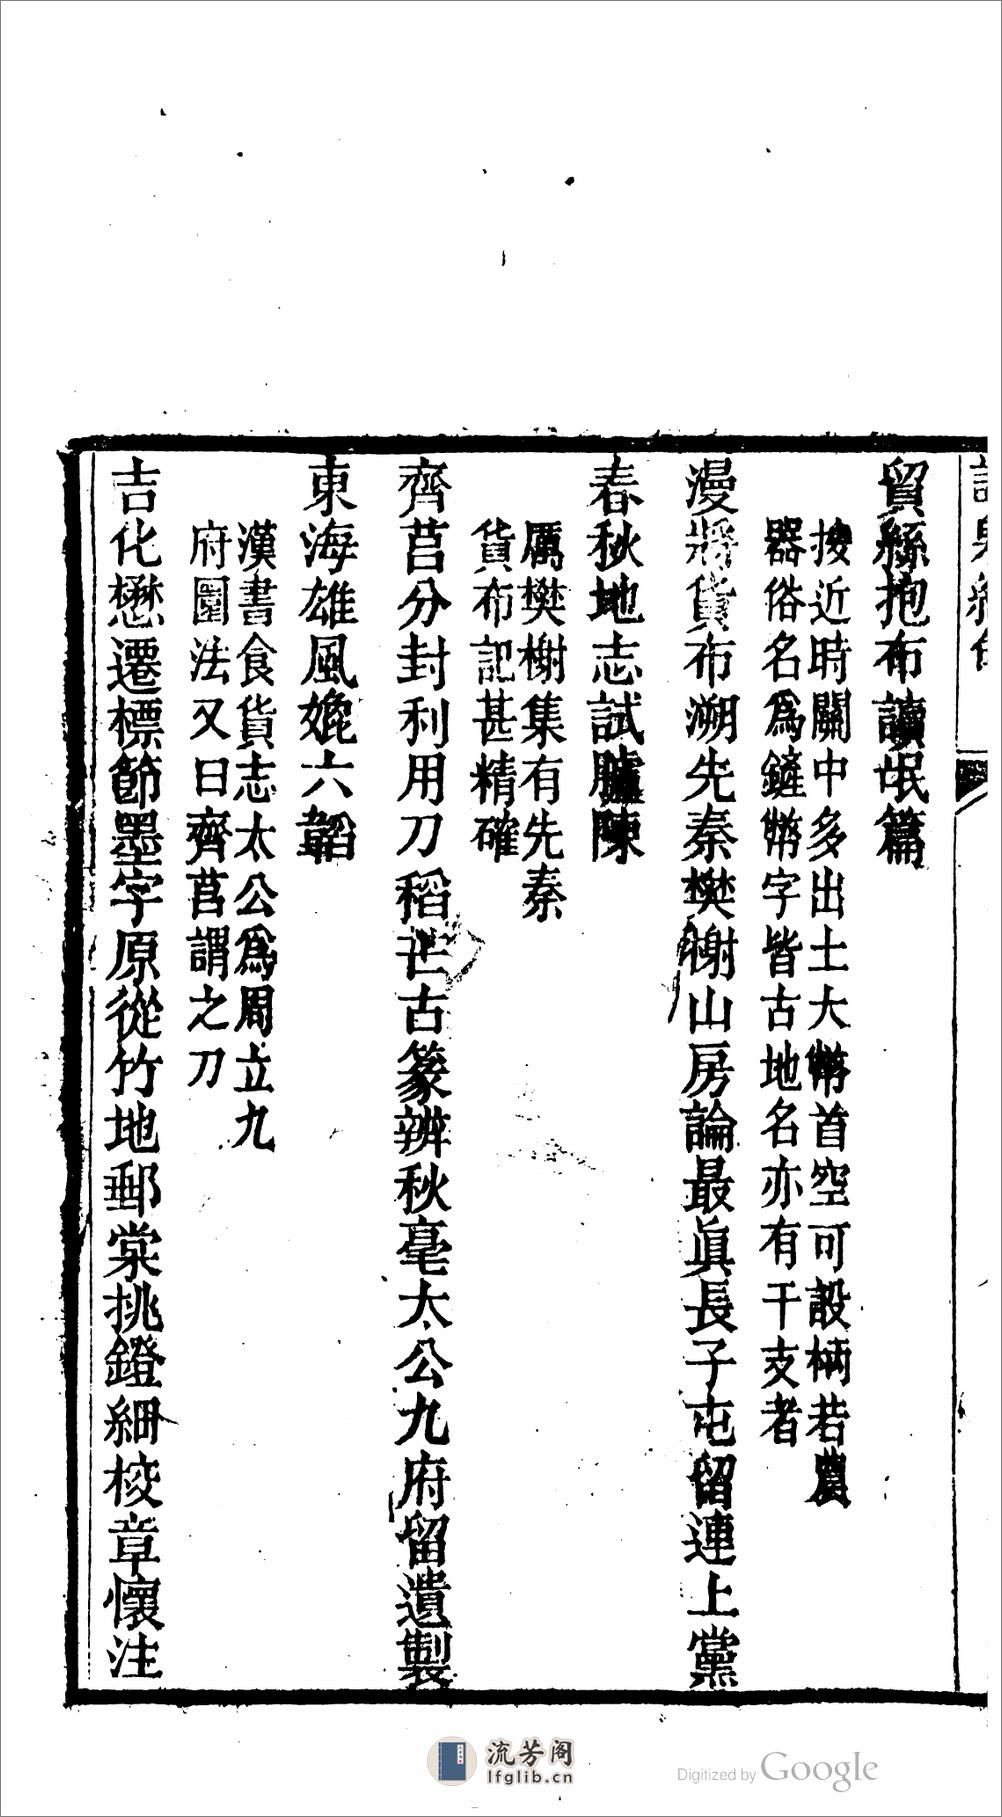 貿絲抱布讀氓篇
按近時關中多出土大幣首空可設柄若農
器俗名爲鏟幣字皆古地名亦有干支者
漫將貨布溯先秦樊榭山房論最眞長子屯留連上黨
春秋地志試臚陳
厲樊榭集有先秦
貨布記甚精確
齊莒分封利用刀稻芒古篆辨秋毫太公九府留遺製
東海雄風媲六韜
漢書食貨志太公爲周立九
府圜法又曰齊莒謂之刀
吉化懋遷標節墨字原從竹地郵棠挑鐙細校章懷注
流芳阁
lfglib.cn
Digitized by Google